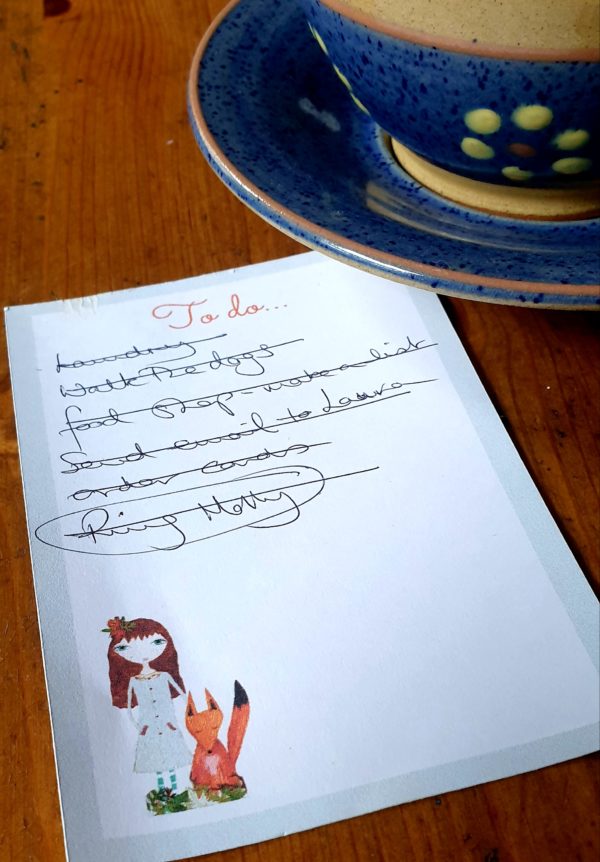 To do...
Laundry
Walk the dogs
food prep - make a list
Send email to Laura
order cards
Ring Molly